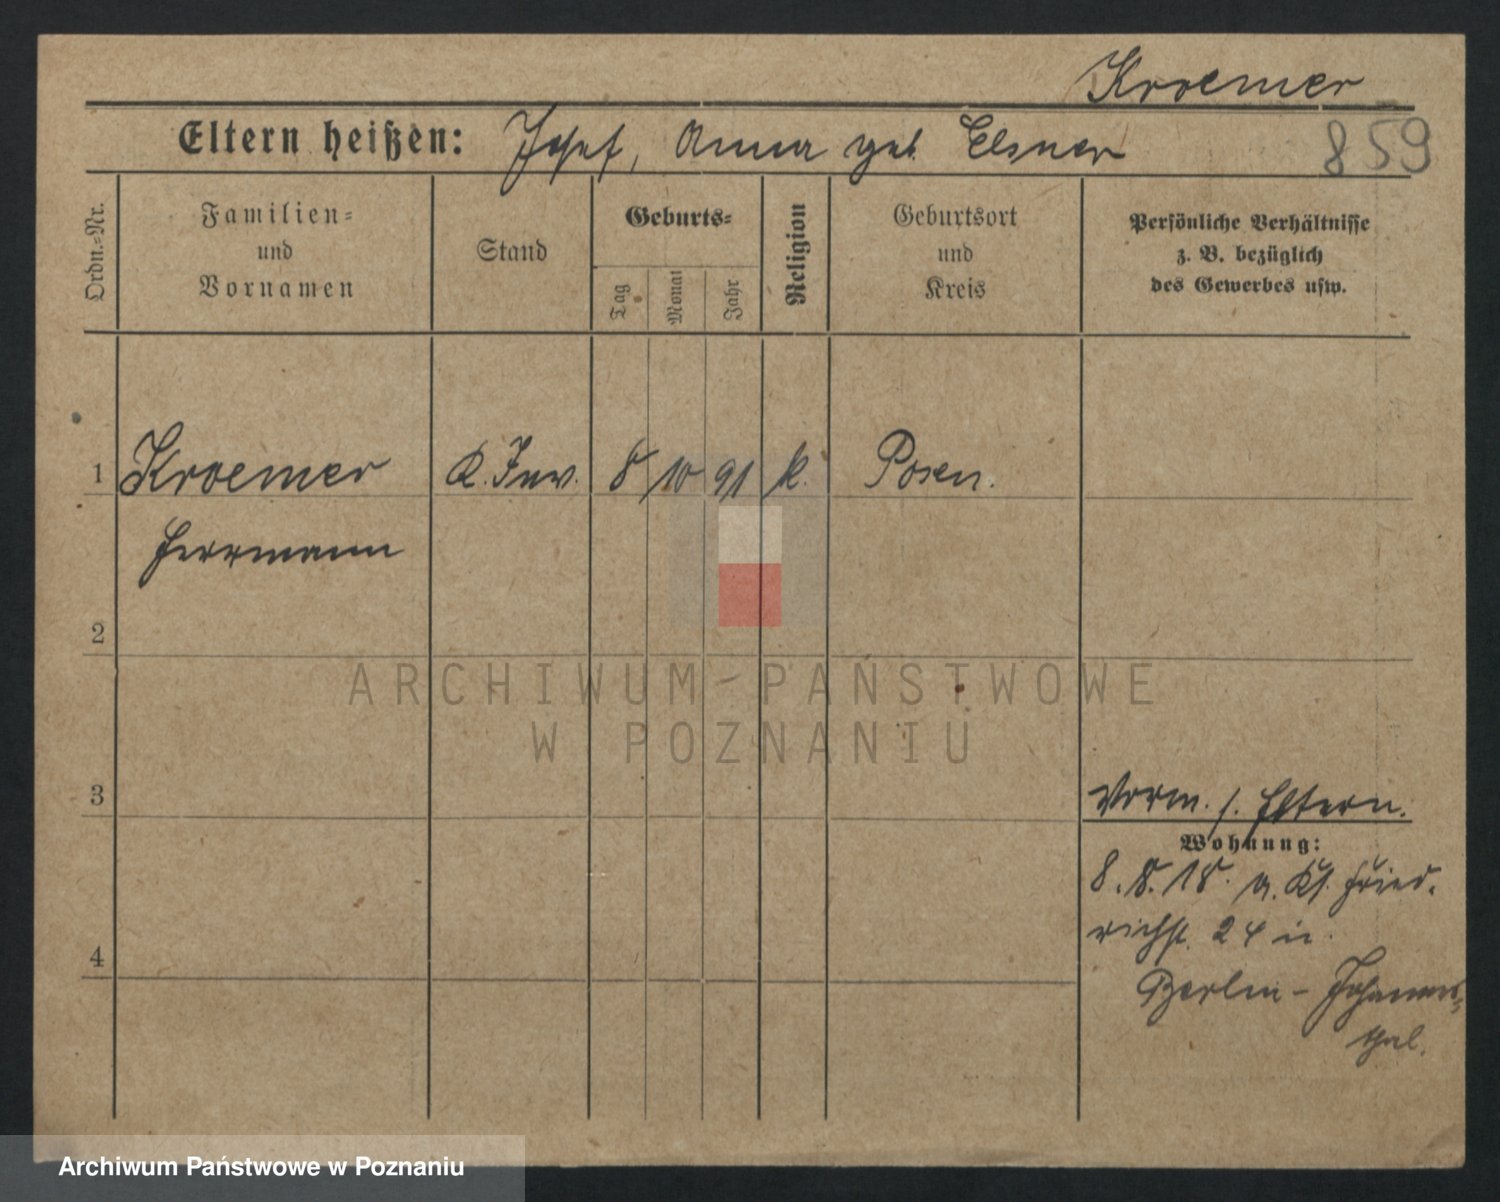 Kroemer
859
Eltern heißen: Josef, Anna geb. Elsner
Ordn.=Nr.
Familien=
und
Vornamen
Stand
Geburts=
Tag
Monat
Jahr
Religion
Geburtsort
und
Kreis
Persönliche Verhältnisse
z. B. bezüglich
des Gewerbes usw.
1 Kroemer K. Inv. 8 10 91 k. Posen.
Herrmann
2
3
4
Vorm. s. Eltern.
Wohnung:
8. 8. 18. a. Fried-
richst. 24 n.
Berlin - Johannis-
thal.
ARCHIWUM PAŃSTWOWE
W POZNANIU
Archiwum Państwowe w Poznaniu